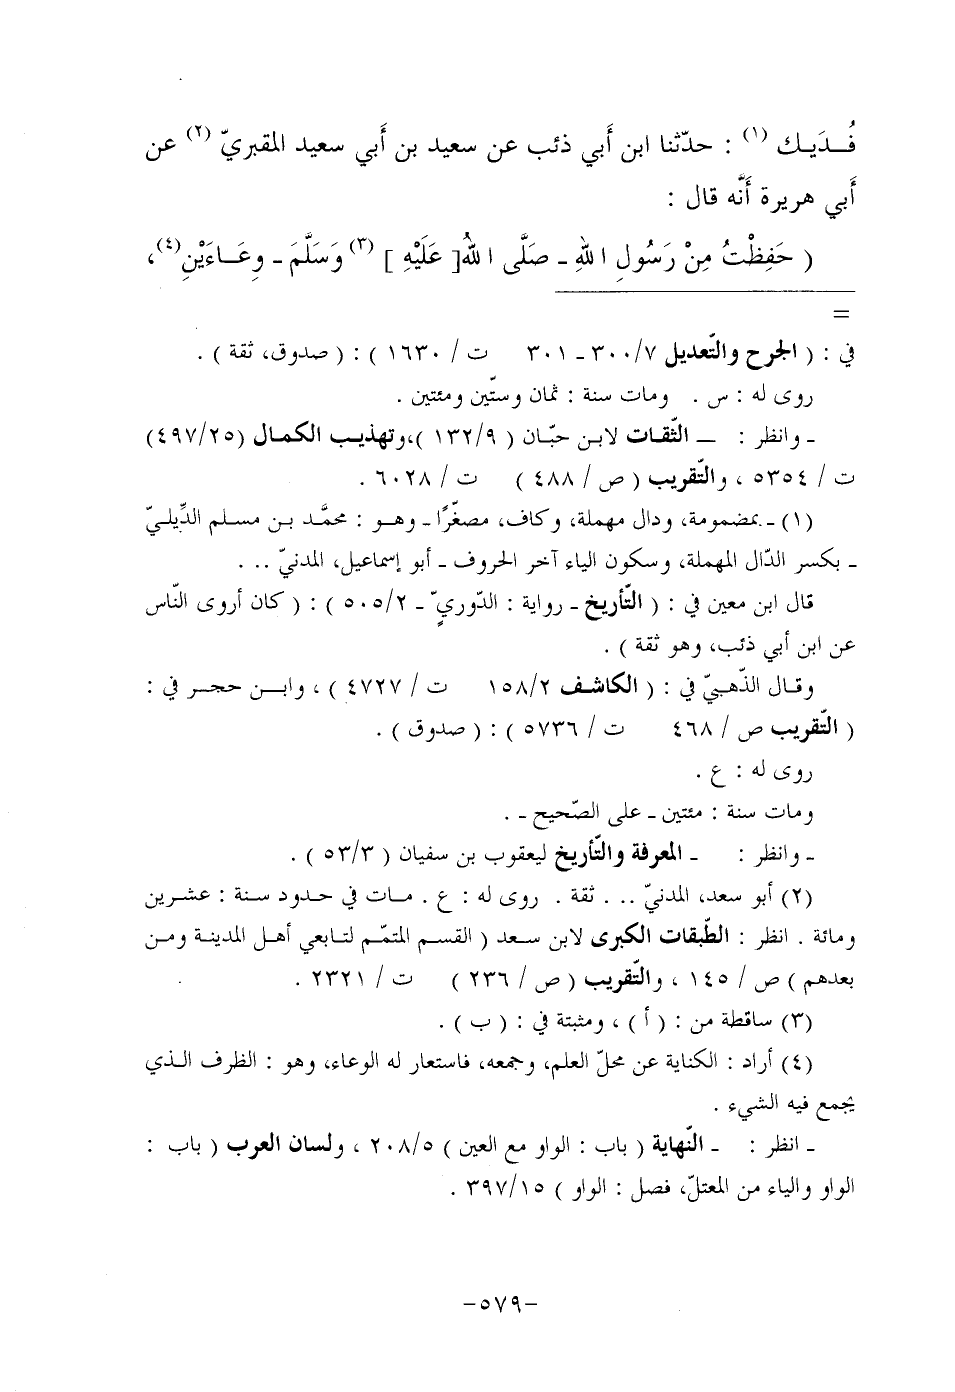 فُـدَيـك (١) : حدّثنا ابن أَبي ذئب عن سعيد بن أَبي سعيد المقبريّ (٢) عن
أَبي هريرة أَنَّه قال :
( حَفِظْتُ مِنْ رَسُولِ اللهِ ـ صَلَّى اللهُ[ عَلَيْهِ ] (٣) وَسَلَّمَ ـ وِعَـاءَيْنِ(٤)،
=
في : ( الجرح والتّعديل ٣٠٠/٧ ـ ٣٠١ ت / ١٦٣٠ ) : ( صدوق، ثقة ) .
روى له : س . ومات سنة : ثمان وستّين ومئتين .
ـ وانظر : ـ الثّقات لابن حبّان ( ١٣٢/٩ )،وتهذيب الكمال (٤٩٧/٢٥)
ت / ٥٣٥٤ ، والتّقريب ( ص / ٤٨٨ ) ت / ٦٠٢٨ .
(١) ـ بمضمومة، ودال مهملة، وكاف، مصغّرًا ـ وهـو : محمَّد بـن مسلم الدِّيليّ
ـ بكسر الدّال المهملة، وسكون الياء آخر الحروف ـ أبو إسماعيل، المدنيّ .. .
قال ابن معين في : ( التّأريخ ـ رواية : الدّوريّ ـ ٥٠٥/٢ ) : ( كان أروى النّاس
عن ابن أبي ذئب، وهو ثقة ) .
وقـال الذّهبيّ في : ( الكاشـف ١٥٨/٢ ت / ٤٧٢٧ ) ، وابـن حجـر في :
( التّقريب ص / ٤٦٨ ت / ٥٧٣٦ ) : ( صدوق ) .
روى له : ع .
ومات سنة : مئتين ـ على الصّحيح ـ .
ـ وانظر : ـ المعرفة والتّأريخ ليعقوب بن سفيان ( ٥٣/٣ ) .
(٢) أبو سعد، المدنيّ .. . ثقة . روى له : ع . مـات في حـدود سنة : عشـرين
ومائة . انظر : الطّبقات الكبرى لابن سـعد ( القسـم المتمّـم لتـابعي أهـل المدينـة ومـن
بعدهم ) ص / ١٤٥ ، والتّقريب ( ص / ٢٣٦ ) ت / ٢٣٢١ .
(٣) ساقطة من : ( أ ) ، ومثبتة في : ( ب ) .
(٤) أراد : الكناية عن محلّ العلم، وجمعه، فاستعار له الوعاء، وهو : الظرف الـذي
يجمع فيه الشيء .
ـ انظر : ـ النّهاية ( باب : الواو مع العين ) ٢٠٨/٥ ، ولسان العرب ( باب :
الواو والياء من المعتلّ، فصل : الواو ) ٣٩٧/١٥ .
-٥٧٩-